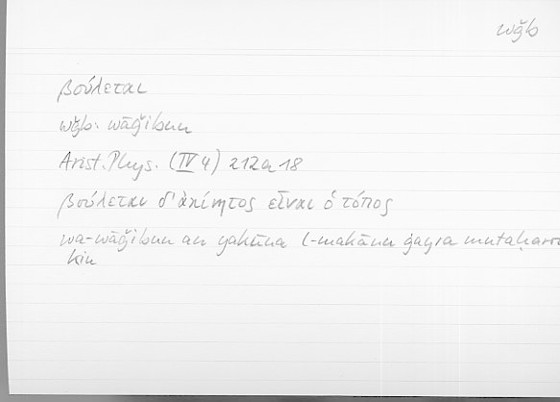 wǧb
βούλεται
wǧb: wāǧibun
Arist. Phys. (IV 4) 212a18
βούλεται δ' ἀκίνητος εἶναι ὁ τόπος
wa-wāǧibun an yakūna l-makānu ġayra mutaḥarri
kin